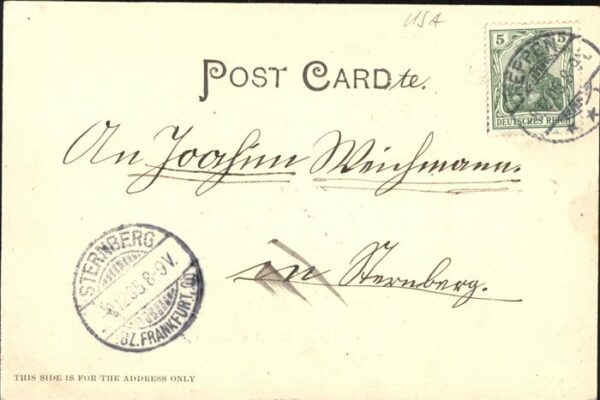 USA
POST CARDte.
5 5
DEUTSCHES REICH
An Joachim Weichmann.
in Sternberg.
STERNBERG
05. 8-9V.
BZ. FRANKFURT
THIS SIDE IS FOR THE ADDRESS ONLY